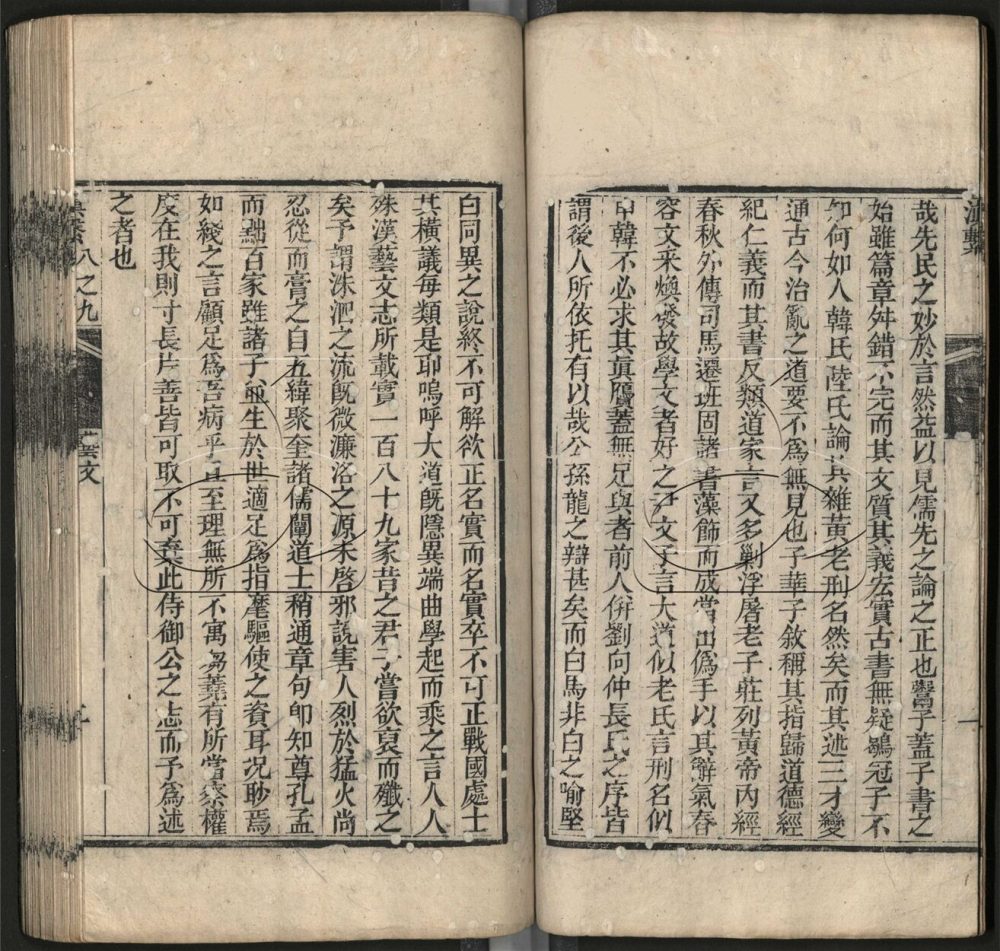 哉先民之妙於言然益以見儒先之論之正也鬻子蓋子書之
始雖篇章舛錯不完而其文質其義宏實古書無疑鶡冠子不
知何如人韓氏陸氏論其雜黃老刑名然矣而其述三才變
通古今治亂之道要不爲無見也子華子敘稱其指歸道德經
紀仁義而其書反類道家言又多剿浮屠老子莊列黃帝內經
春秋外傳司馬遷班固諸書藻飾而成當出僞手以其辭氣春
容文采煥發故學文者好之尹文子言大道似老氏言刑名似
申韓不必求其眞贋蓋無足與者前人倂劉向仲長氏之序皆
謂後人所依托有以哉公孫龍之辯甚矣而白馬非白之喻堅
白同異之說終不可解欲正名實而名實卒不可正戰國處士
其橫議每類是耶嗚呼大道旣隱異端曲學起而乘之言人人
殊漢藝文志所載實一百八十九家昔之君子嘗欲裒而殲之
矣予謂洙泗之流旣微濂洛之源未啓邪說害人烈於猛火尚
忍從而膏之自五緯聚奎諸儒闡道士稍通章句卽知尊孔孟
而黜百家雖諸子並生於世適足爲指麾驅使之資耳况眇焉
如綫之言顧足爲吾病乎且至理無所不寓芻蕘有所當察權
度在我則寸長片善皆可取不可棄此侍御公之志而予爲述
之者也
八之九
藝文